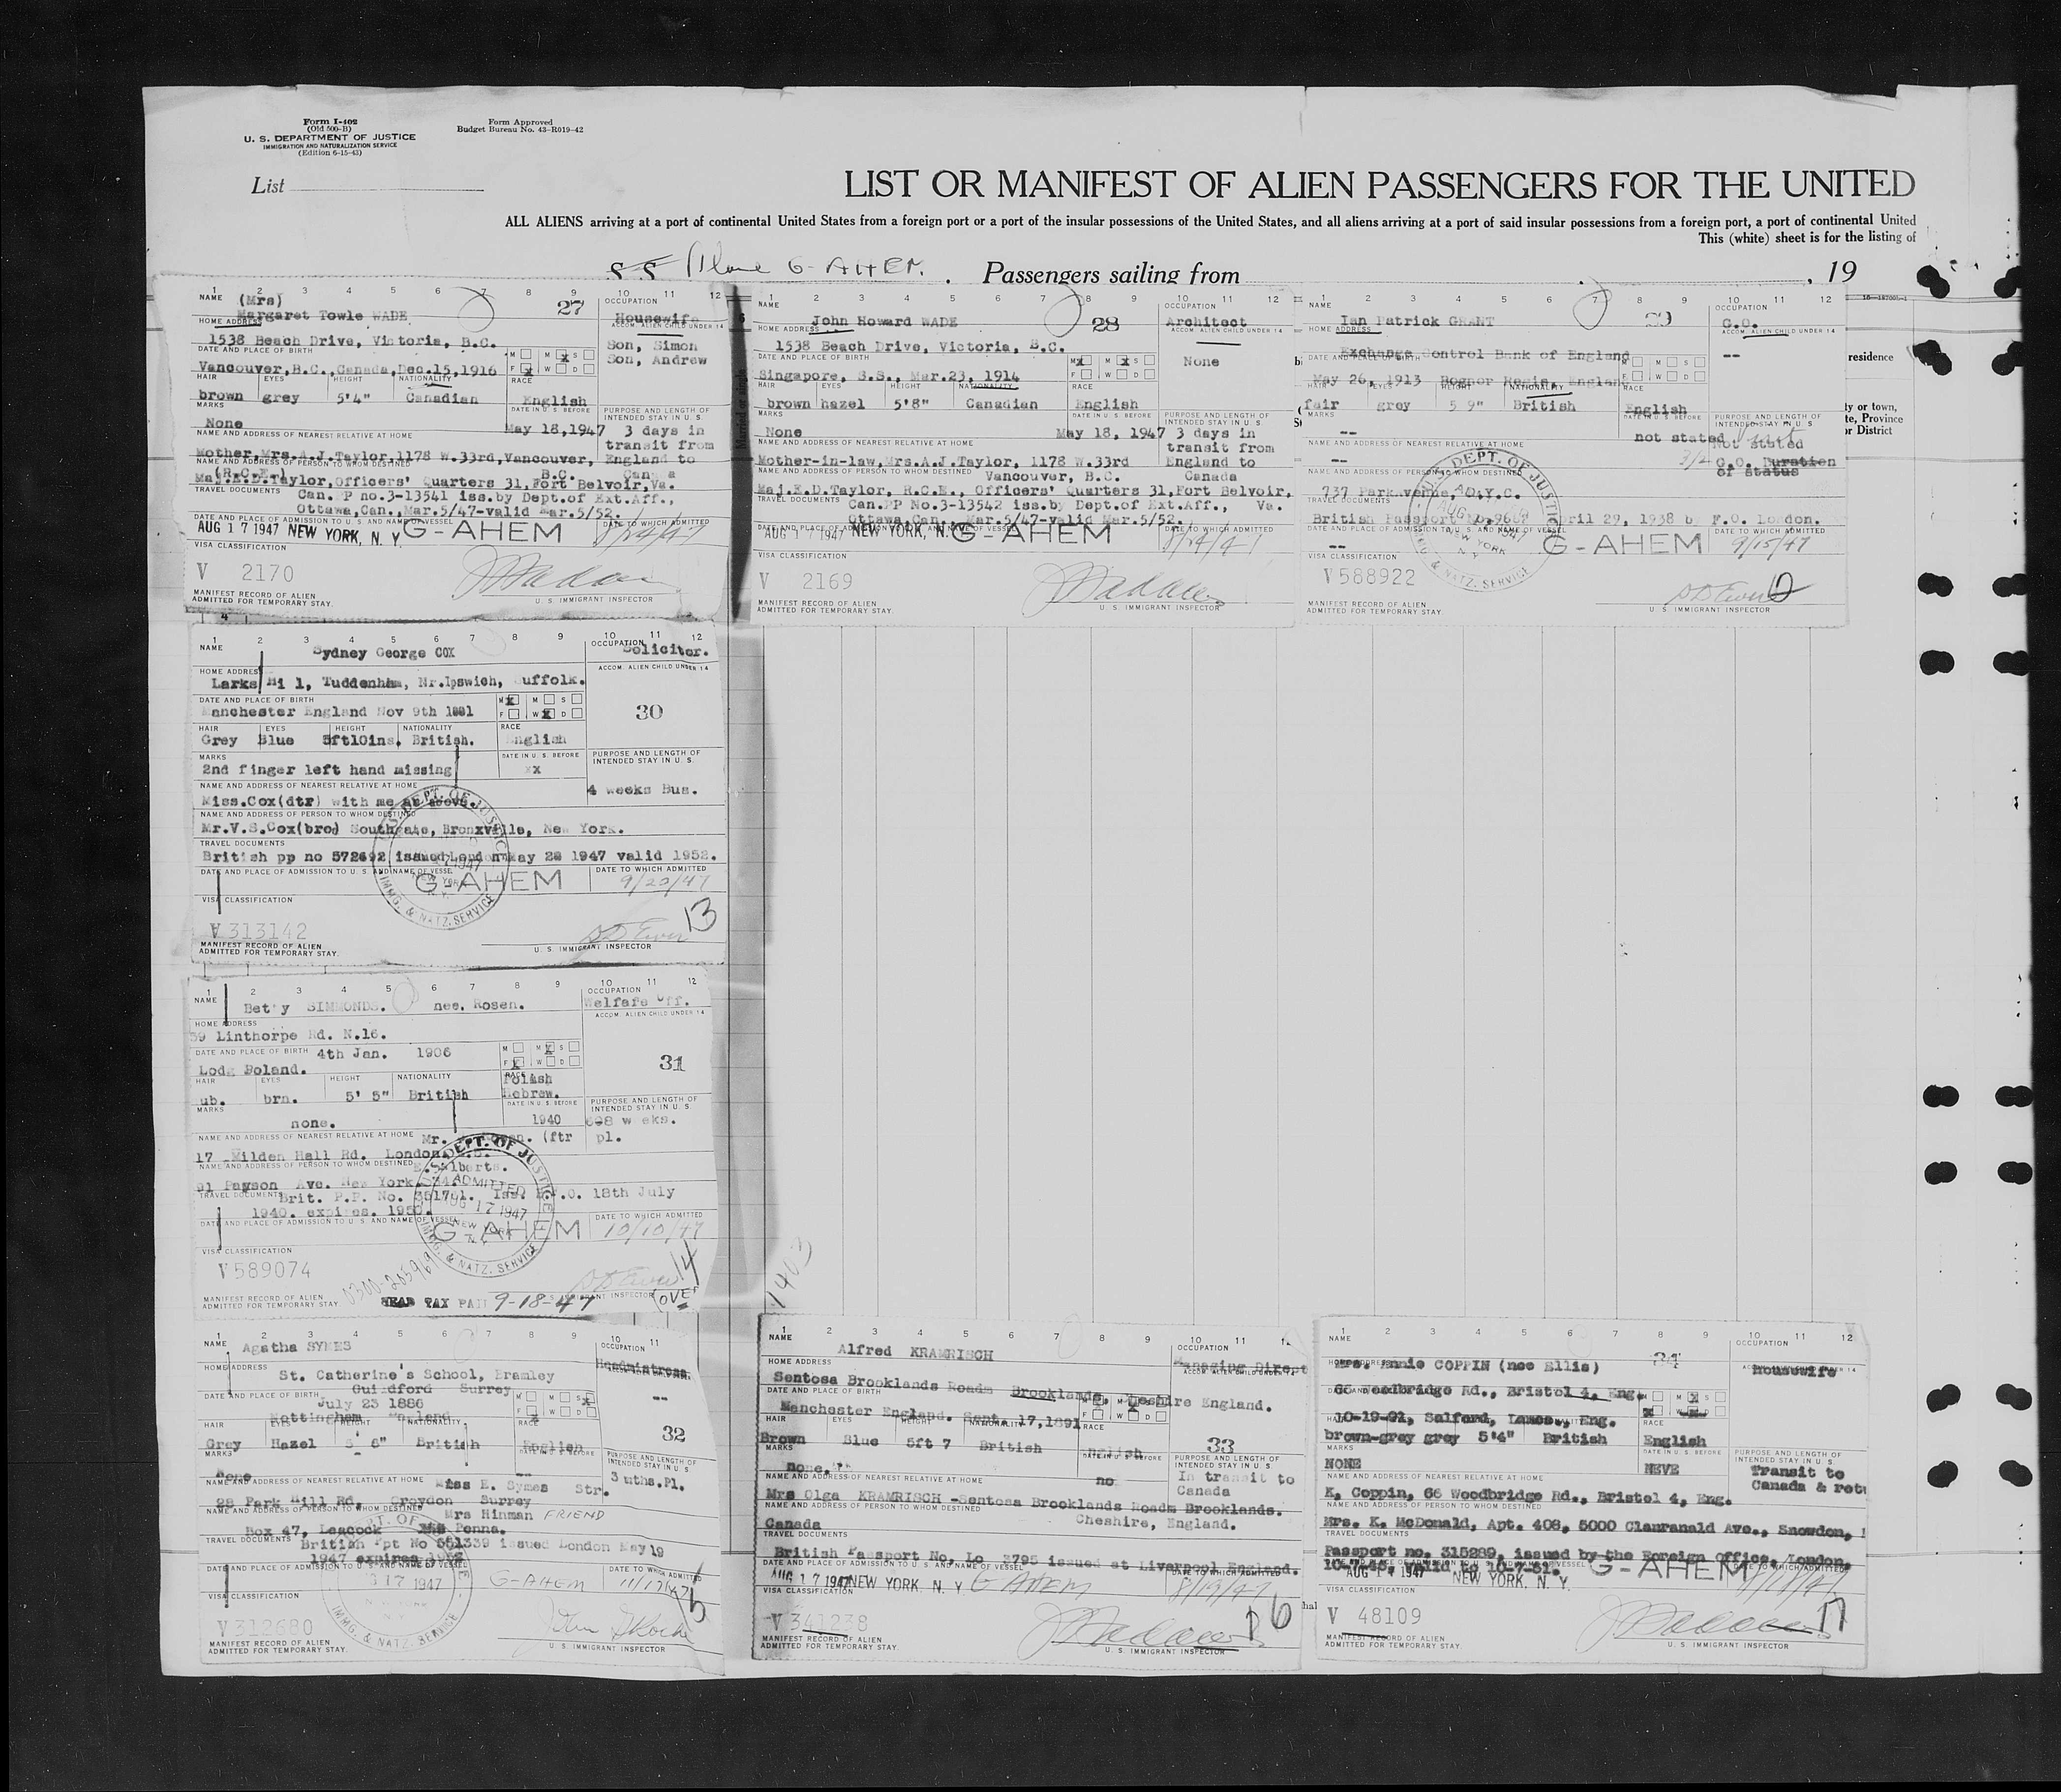 Form I-402
(Old 500-B)
U. S. DEPARTMENT OF JUSTICE
IMMIGRATION AND NATURALIZATION SERVICE
(Edition 6-15-43)
Form Approved
Budget Bureau No. 43-R019-42
List
LIST OR MANIFEST OF ALIEN PASSENGERS FOR THE UNITED
ALL ALIENS arriving at a port of continental United States from a foreign port or a port of the insular possessions of the United States, and all aliens arriving at a port of said insular possessions from a foreign port, a port of continental United
This (white) sheet is for the listing of
SS Plane G-AHEM. Passengers sailing from , 19
1 2 3 4 5 6 7 8 9 10 11 12
NAME (Mrs) 27 OCCUPATION
Margaret Towle WADE Housewife
HOME ADDRESS ACCOM. ALIEN CHILD UNDER 14
1538 Beach Drive, Victoria, B.C. Son, Simon
DATE AND PLACE OF BIRTH M M X S Son, Andrew
Vancouver,B.C.,Canada,Dec.15,1916 F X W D
HAIR EYES HEIGHT NATIONALITY RACE
brown grey 5'4" Canadian English
MARKS DATE IN U.S. BEFORE PURPOSE AND LENGTH OF INTENDED STAY IN U.S.
None May 18,1947 3 days in
NAME AND ADDRESS OF NEAREST RELATIVE AT HOME transit from
Mother,Mrs.A.J.Taylor,1178 W.33rd,Vancouver, England to
NAME AND ADDRESS OF PERSON TO WHOM DESTINED B.C.
(R.C.E.)
Maj.E.D.Taylor,Officers' Quarters 31,Fort Belvoir,Va.
TRAVEL DOCUMENTS Can.PP no.3-13541 iss.by Dept.of Ext.Aff.,
Ottawa,Can.,Mar.5/47-valid Mar.5/52.
DATE AND PLACE OF ADMISSION TO U. S. AND NAME OF VESSEL DATE TO WHICH ADMITTED
AUG 17 1947 NEW YORK, N. Y. G-AHEM 8/24/47
VISA CLASSIFICATION
V 2170
MANIFEST RECORD OF ALIEN
ADMITTED FOR TEMPORARY STAY. U. S. IMMIGRANT INSPECTOR
1 2 3 4 5 6 7 8 9 10 11 12
NAME OCCUPATION
John Howard WADE 28 Architect
HOME ADDRESS ACCOM. ALIEN CHILD UNDER 14
1538 Beach Drive, Victoria, B.C.
DATE AND PLACE OF BIRTH M X M X S None
Singapore, S.S., Mar.23, 1914 F W D
HAIR EYES HEIGHT NATIONALITY RACE
brown hazel 5'8" Canadian English
MARKS DATE IN U.S. BEFORE PURPOSE AND LENGTH OF INTENDED STAY IN U.S.
None May 18, 1947 3 days in
NAME AND ADDRESS OF NEAREST RELATIVE AT HOME transit from
Mother-in-law,Mrs.A.J.Taylor, 1178 W.33rd England to
NAME AND ADDRESS OF PERSON TO WHOM DESTINED Vancouver, B.C. Canada
Maj.E.D.Taylor, R.C.E., Officers' Quarters 31,Fort Belvoir,
TRAVEL DOCUMENTS Can.PP No.3-13542 iss.by Dept.of Ext.Aff., Va.
Ottawa,Can.,Mar.5/47-valid Mar.5/52.
DATE AND PLACE OF ADMISSION TO U. S. AND NAME OF VESSEL DATE TO WHICH ADMITTED
AUG 17 1947 NEW YORK, N. Y. G-AHEM 8/24/47
VISA CLASSIFICATION
V 2169
MANIFEST RECORD OF ALIEN
ADMITTED FOR TEMPORARY STAY. U. S. IMMIGRANT INSPECTOR
1 2 3 4 5 6 7 8 9 10 11 12
NAME OCCUPATION
Ian Patrick GRANT G.O.
HOME ADDRESS ACCOM. ALIEN CHILD UNDER 14
Exchange Control Bank of England --
DATE AND PLACE OF BIRTH M M S F W D
May 26, 1913 Bognor Regis, England
HAIR EYES HEIGHT NATIONALITY RACE
fair grey 5 9" British English
MARKS DATE IN U.S. BEFORE PURPOSE AND LENGTH OF INTENDED STAY IN U.S.
-- not stated Not stated
NAME AND ADDRESS OF NEAREST RELATIVE AT HOME
-- G.O. Duration
NAME AND ADDRESS OF PERSON TO WHOM DESTINED of status
737 Park
TRAVEL DOCUMENTS
British Passport April 29, 1938 by F.O. London.
DATE AND PLACE OF ADMISSION TO U. S. AND NAME OF VESSEL DATE TO WHICH ADMITTED
-- G-AHEM 9/15/47
VISA CLASSIFICATION
V588922
12
MANIFEST RECORD OF ALIEN
ADMITTED FOR TEMPORARY STAY. U. S. IMMIGRANT INSPECTOR
residence
ty or town,
te, Province
or District
1 2 3 4 5 6 7 8 9 10 11 12
NAME OCCUPATION
Sydney George COX Solicitor.
HOME ADDRESS ACCOM. ALIEN CHILD UNDER 14
Larks Hi l, Tuddenham, Nr.Ipswich, uffolk.
DATE AND PLACE OF BIRTH M X M S
Manchester England Nov 9th 1881 F W X D 30
HAIR EYES HEIGHT NATIONALITY RACE
Grey Blue 5ft10ins. British. English
MARKS DATE IN U.S. BEFORE PURPOSE AND LENGTH OF INTENDED STAY IN U.S.
2nd finger left hand missing xx
NAME AND ADDRESS OF NEAREST RELATIVE AT HOME 4 weeks Bus.
Miss.Cox(dtr) with me as above.
NAME AND ADDRESS OF PERSON TO WHOM DESTINED
Mr.V.S.Cox(bro) Southgate, Bronxville, New York.
TRAVEL DOCUMENTS
British pp no 572692 issued London May 1947 valid 1952.
DATE AND PLACE OF ADMISSION TO U. S. AND NAME OF VESSEL DATE TO WHICH ADMITTED
G-AHEM 9/20/47
VISA CLASSIFICATION
V313142 13
MANIFEST RECORD OF ALIEN
ADMITTED FOR TEMPORARY STAY. U. S. IMMIGRANT INSPECTOR
1 2 3 4 5 6 7 8 9 10 11 12
NAME OCCUPATION
Betty SIMMONDS. nee. Rosen. Welfare Off.
HOME ADDRESS ACCOM. ALIEN CHILD UNDER 14
59 Linthorpe Rd. N.16.
DATE AND PLACE OF BIRTH 4th Jan. 1906 M M X S
Lodz Poland. F X W D 31
HAIR EYES HEIGHT NATIONALITY RACE Polish
ub. brn. 5' 5" British Hebrew.
MARKS DATE IN U.S. BEFORE PURPOSE AND LENGTH OF INTENDED STAY IN U.S.
none. 1940
NAME AND ADDRESS OF NEAREST RELATIVE AT HOME Mr. (ftr pl.
17 Milden Hall Rd. London
NAME AND ADDRESS OF PERSON TO WHOM DESTINED
91 Payson Ave. New York.
TRAVEL DOCUMENTS Brit. P.P. No. Iss. F.O. 18th July
1940. expires. 1950.
DATE AND PLACE OF ADMISSION TO U. S. AND NAME OF VESSEL DATE TO WHICH ADMITTED
U.S. DEPT. OF JUSTICE
ADMITTED
AUG 17 1947
NEW YORK
N. Y.
IMMG. & NATZ. SERVICE
G-AHEM 10/10/47
VISA CLASSIFICATION
V589074 14
MANIFEST RECORD OF ALIEN
ADMITTED FOR TEMPORARY STAY HEAD TAX PAID 9-18-47 U. S. IMMIGRANT INSPECTOR
1403
1 2 3 4 5 6 7 8 9 10 11
NAME OCCUPATION
Agatha SYMES Headmistress.
HOME ADDRESS
St. Catherine's School, Bramley --
DATE AND PLACE OF BIRTH Guildford Surrey
July 23 1886
Nottingham England
HAIR EYES HEIGHT NATIONALITY RACE 32
Grey Hazel 5' 8" British English
MARKS DATE IN U.S. BEFORE PURPOSE AND LENGTH OF INTENDED STAY IN U.S.
None -- 3 mths.Pl.
NAME AND ADDRESS OF NEAREST RELATIVE AT HOME Miss E. Symes Str.
28 Park Hill Rd. Croydon Surrey
NAME AND ADDRESS OF PERSON TO WHOM DESTINED Mrs Hinman FRIEND
Box 47, Leacock Penna.
TRAVEL DOCUMENTS British Ppt No 551339 issued London May 19
1947 expires 1952
DATE AND PLACE OF ADMISSION TO U. S. AND NAME OF VESSEL DATE TO WHICH ADMITTED
G-AHEM 11/17/47
VISA CLASSIFICATION
V312680
MANIFEST RECORD OF ALIEN
ADMITTED FOR TEMPORARY STAY. U. S. IMMIGRANT INSPECTOR
1 2 3 4 5 6 7 8 9 10 11
NAME OCCUPATION
Alfred KRAMRISCH Managing Direct
HOME ADDRESS
Sentosa Brooklands Roadm Brooklands, Cheshire England.
DATE AND PLACE OF BIRTH
Manchester England. Sept. 17,1891
HAIR EYES HEIGHT NATIONALITY RACE 33
Brown Blue 5ft 7 British English
MARKS DATE IN U.S. BEFORE PURPOSE AND LENGTH OF INTENDED STAY IN U.S.
none. no In transit to
NAME AND ADDRESS OF NEAREST RELATIVE AT HOME Canada
Mrs Olga KRAMRISCH -Sentosa Brooklands Roadm Brooklands.
NAME AND ADDRESS OF PERSON TO WHOM DESTINED Cheshire, England.
Canada
TRAVEL DOCUMENTS
British Passport No. Lo 3795 issued at Liverpool England.
DATE AND PLACE OF ADMISSION TO U. S. AND NAME OF VESSEL DATE TO WHICH ADMITTED
AUG 17 1947 NEW YORK, N. Y. G AHEM 8/19/47
VISA CLASSIFICATION
V 341238
MANIFEST RECORD OF ALIEN
ADMITTED FOR TEMPORARY STAY. U. S. IMMIGRANT INSPECTOR
1 2 3 4 5 6 7 8 9 10 11 12
NAME 34 OCCUPATION
Mrs. Annie COPPIN (nee Ellis) Housewife
HOME ADDRESS
66 Woodbridge Rd., Bristol 4, Eng.
10-19-91, Salford, Lancs., Eng.
brown-grey grey 5'4" British English
MARKS DATE IN U.S. BEFORE PURPOSE AND LENGTH OF INTENDED STAY IN U.S.
NONE NEVE Transit to
NAME AND ADDRESS OF NEAREST RELATIVE AT HOME Canada & retu
K. Coppin, 66 Woodbridge Rd., Bristol 4, Eng.
NAME AND ADDRESS OF PERSON TO WHOM DESTINED
Mrs. K. McDonald, Apt. 408, 5000 Clanranald Ave., Snowdon,
TRAVEL DOCUMENTS
Passport no. 315289, issued by the Foreign office, London,
valid to 10-7-51.
AUG 17 1947 NEW YORK, N. Y. G-AHEM
VISA CLASSIFICATION
V 48109 17
MANIFEST RECORD OF ALIEN
ADMITTED FOR TEMPORARY STAY. U. S. IMMIGRANT INSPECTOR